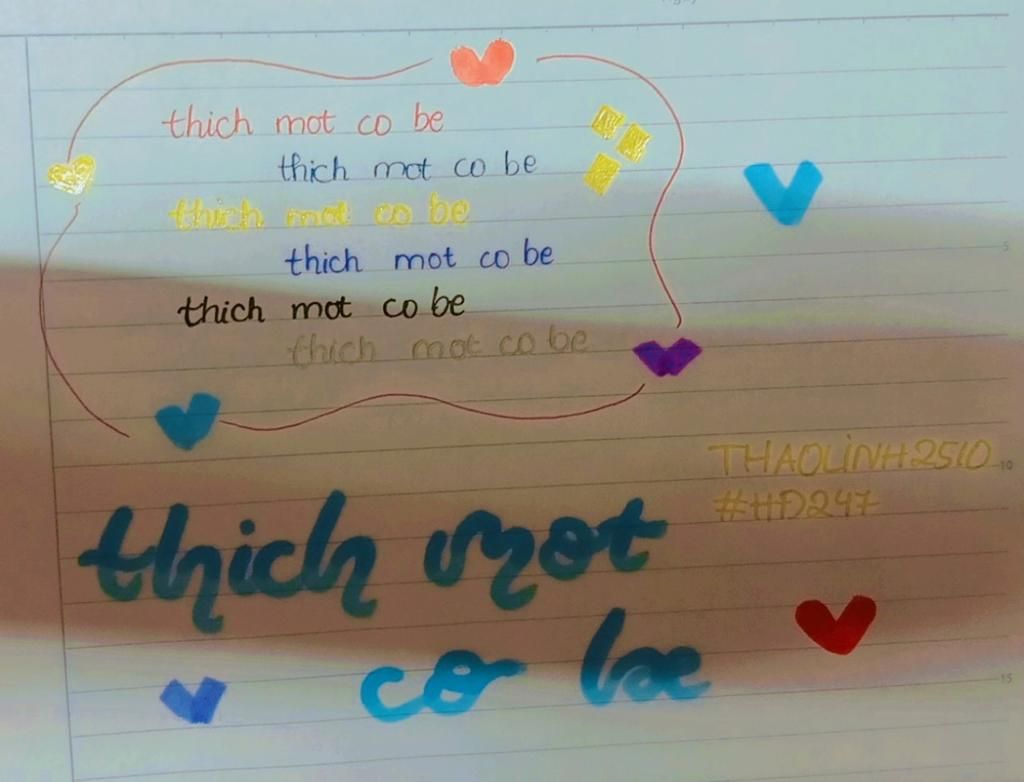 thich mot co be
thich mot co be
thich mot co be
thich mot co be
thich mot co be
thich mot co be
5
THAOLINH2510
10
#HĐ247
thich mot
co be
15